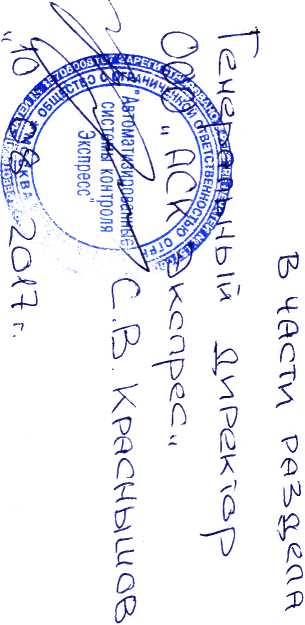 В ЧАСТИ РАЗДЕЛА
Генеральный директор
ООО "АСК Экспрес"
С.В. КРАСНЫШОВ
2017г.
ОБЩЕСТВО С ОГРАНИЧЕННОЙ ОТВЕТСТВЕННОСТЬЮ
"Автоматизированные
системы контроля
Экспресс"